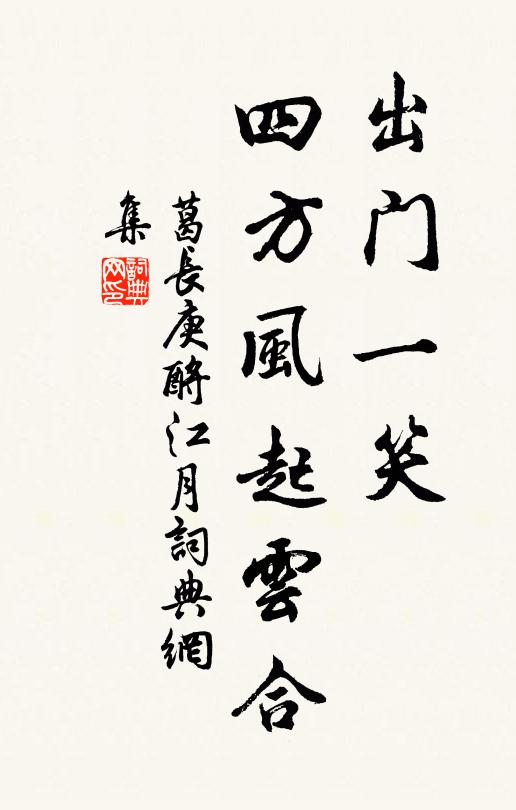 出门一笑
四方風起雲合
葛長庚酹江月詞典網
集
詞典
网印